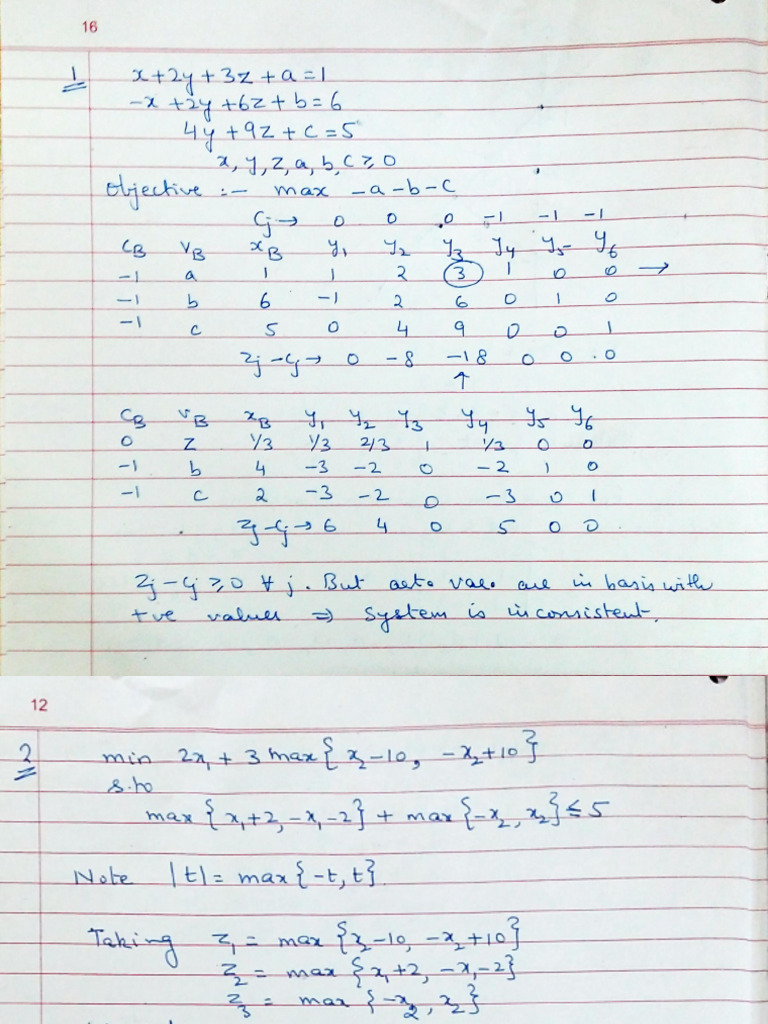 16
1 x+2y+3z+a=1
-x+2y+6z+b=6
4y+9z+c=5
x, y, z, a, b, c ≥ 0
Objective :- max -a-b-c
Cj→ 0 0 0 -1 -1 -1
CB VB xB y1 y2 y3 y4 y5 y6
-1 a 1 1 2 3 1 0 0 →
-1 b 6 -1 2 6 0 1 0
-1 c 5 0 4 9 0 0 1
Zj-Cj→ 0 -8 -18 0 0 0
↑
CB VB xB y1 y2 y3 y4 y5 y6
0 Z 1/3 1/3 2/3 1 1/3 0 0
-1 b 4 -3 -2 0 -2 1 0
-1 c 2 -3 -2 0 -3 0 1
Zj-Cj→ 6 4 0 5 0 0
Zj-Cj ≥ 0 ∀ j. But art. var. are in basis with
+ve values ⇒ System is inconsistent.
12
2 min 2x1 + 3 max{ x2-10, -x2+10}
s.to
max{x1+2, -x1-2} + max{-x2, x2} ≤ 5
Note |t| = max{-t, t}
Taking z1 = max{x2-10, -x2+10}
z2 = max{x1+2, -x1-2}
z3 = max{-x2, x2}